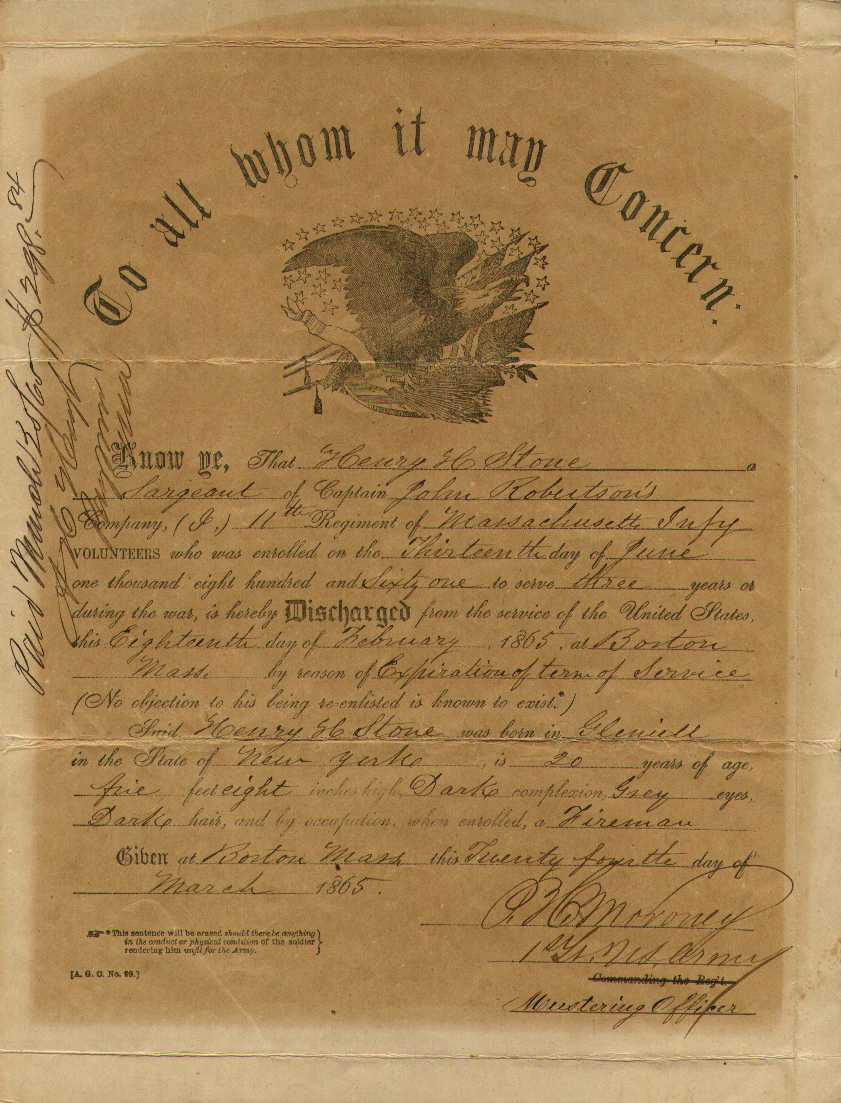 To all whom it may Concern:
Know ye, That Henry H Stone a
Sargeant of Captain John Robertson's
Company, (I,) 11th Regiment of Massachusetts Infy
VOLUNTEERS who was enrolled on the Thirteenth day of June
one thousand eight hundred and Sixty one to serve three years or
during the war, is hereby Discharged from the service of the United States,
this Eighteenth day of February, 1865, at Boston
Mass. by reason of Expiration of term of Service
(No objection to his being re-enlisted is known to exist.*)
Said Henry H Stone was born in
in the State of New York, is 20 years of age,
five feet eight inches high, Dark complexion, Grey eyes,
Dark hair, and by occupation, when enrolled, a Fireman
Given at Boston Mass this Twenty fourth day of
March 1865.
Moroney
1st Lt. Army
Commanding the Reg't.
Mustering Officer
*This sentence will be erased should there be anything
in the conduct or physical condition of the soldier
rendering him unfit for the Army.
[A. G. O. No. 99.]
Paid March 25/65 $298.84
Paymr